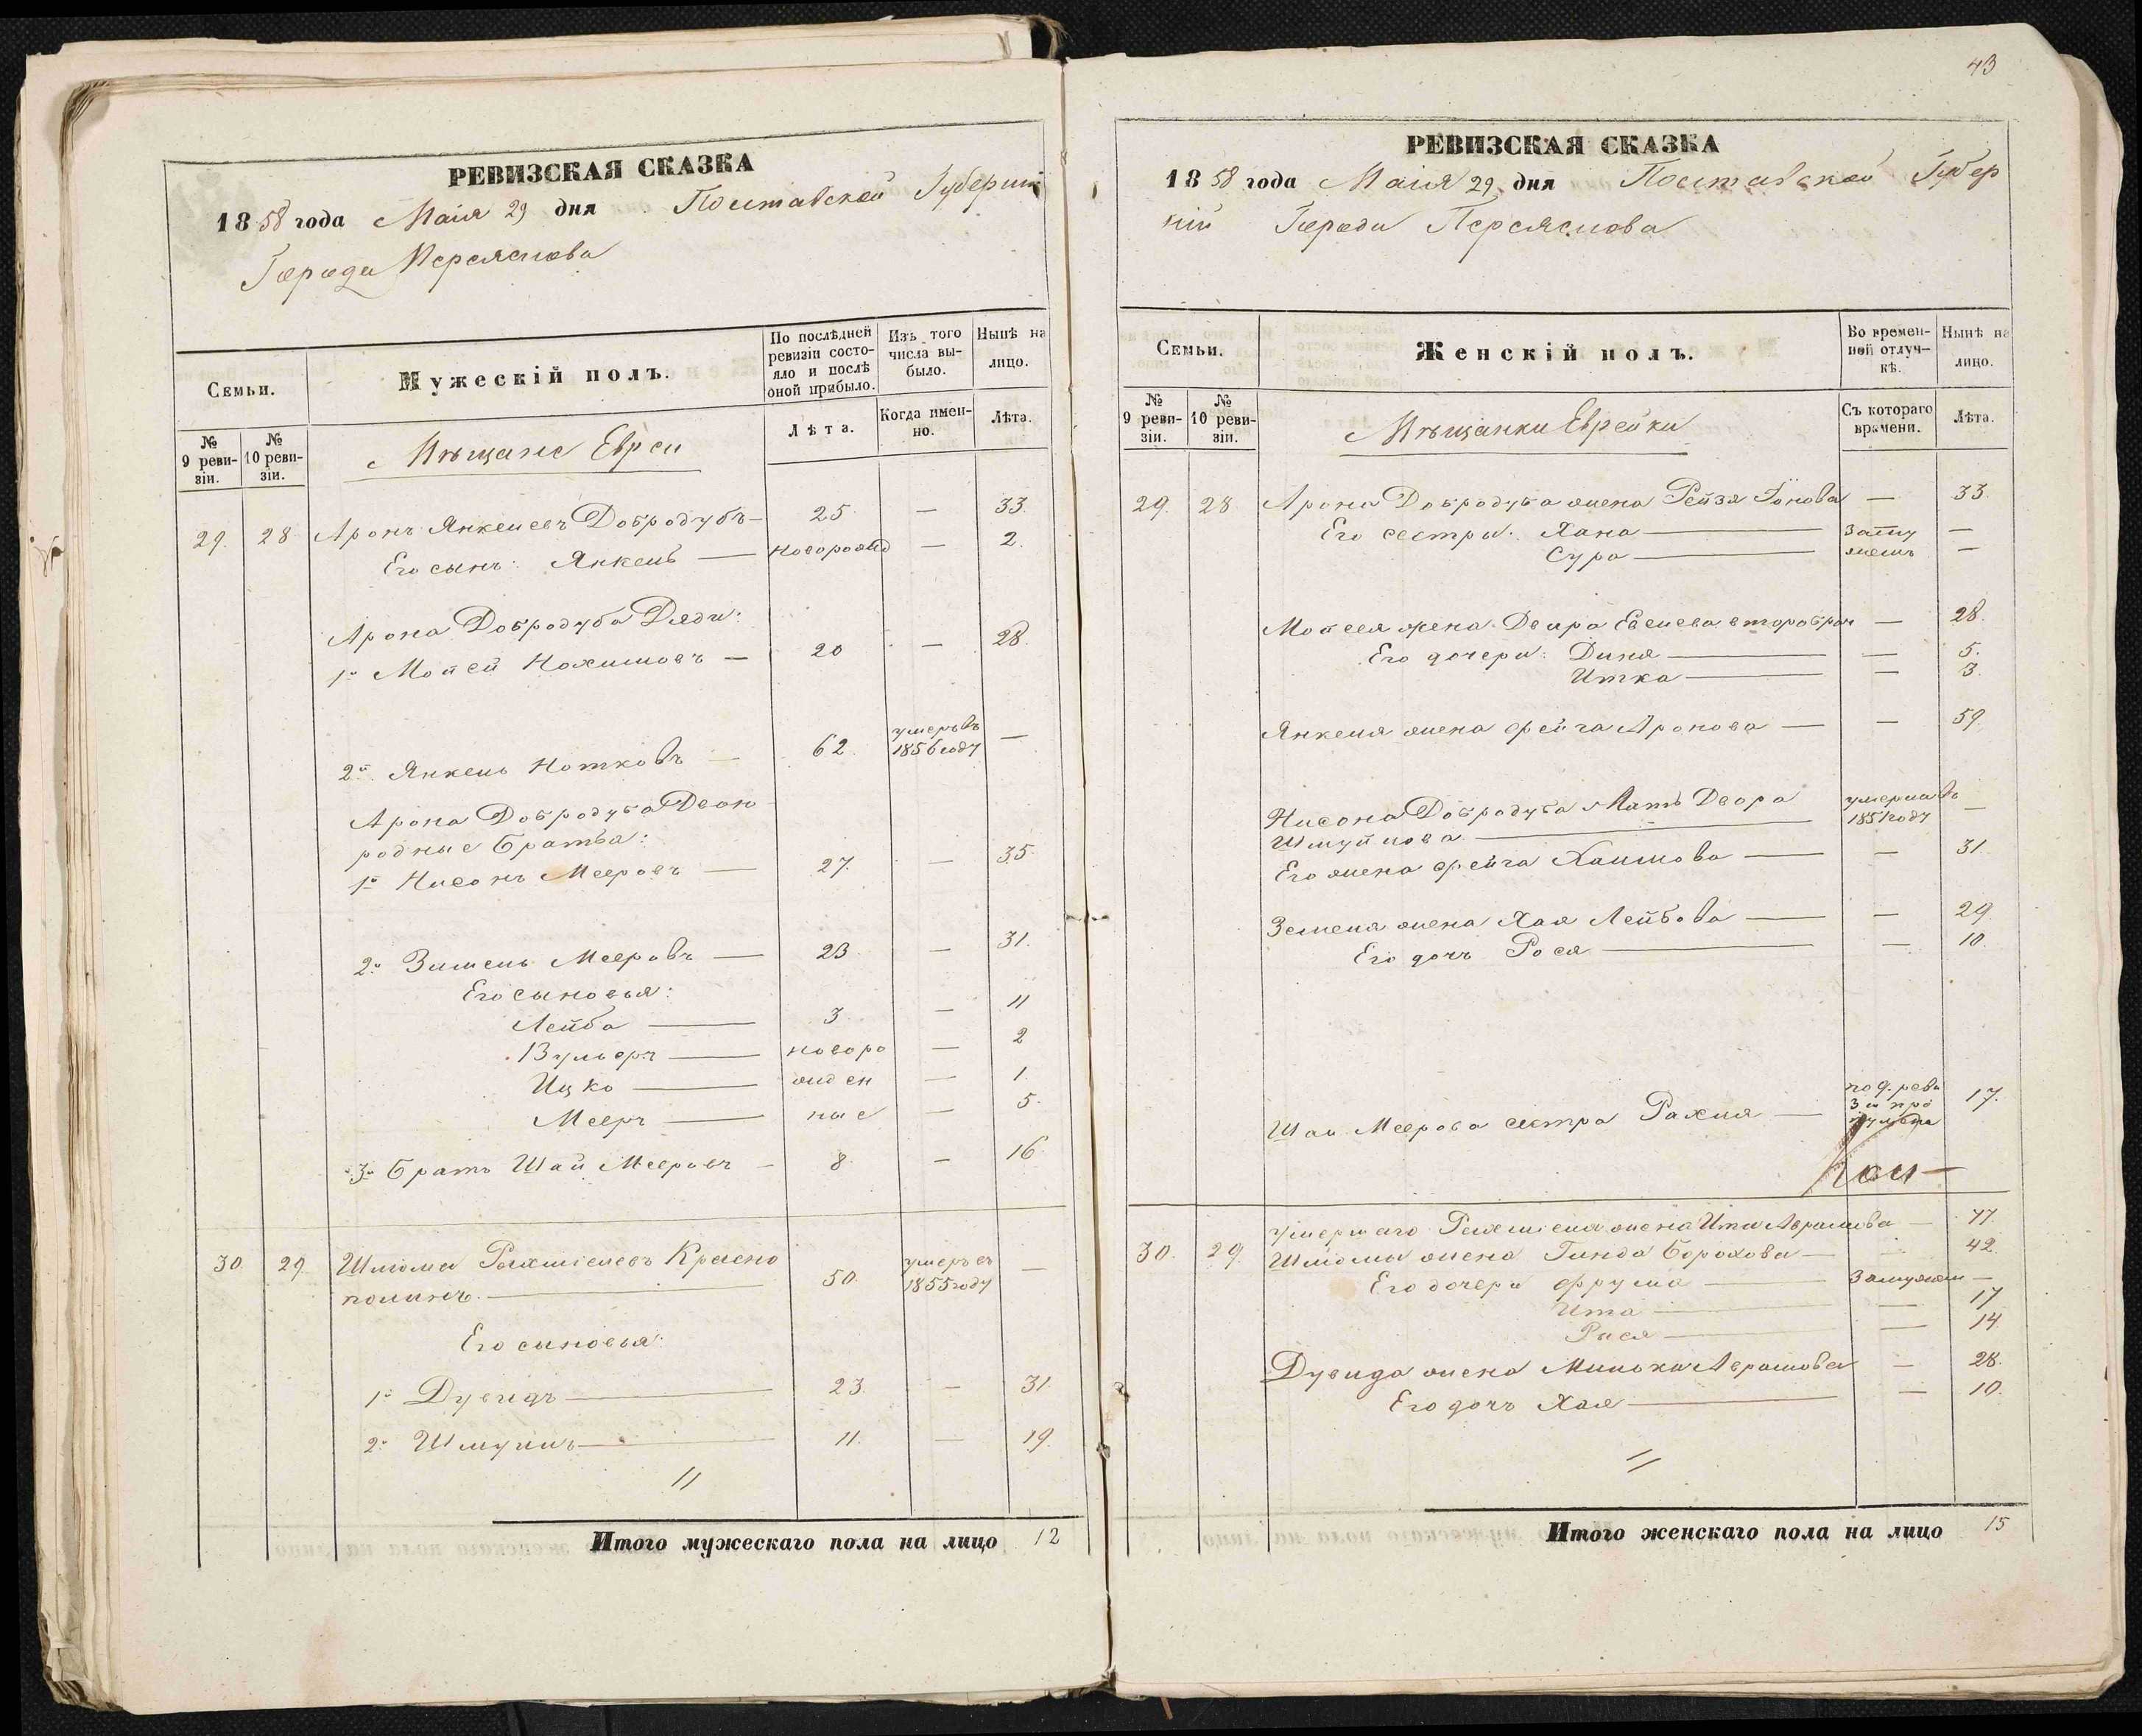 РЕВИЗСКАЯ СКАЗКА
1858 года Маія 29 дня Полтавской Губерніи
Города Переяслова
Семьи.
Мужескій полъ.
По послѣдней ревизіи состо-яло и послѣ оной прибыло.
Изъ того числа вы-было.
Нынѣ на лицо.
№ 9 реви-зіи.
№ 10 реви-зіи.
Мѣщане Евреи
Лѣта.
Когда имен-но.
Лѣта.
29. 28 Аронъ Янкелевъ Добродубъ — 25 — 33.
Его сынъ: Янкель — новорожд — 2.
Арона Добродуба Дяди:
1й Мойсей Нохимовъ — 20 — 28.
2й Янкель Нотковъ — 62 умеръ въ 1856 году —
Арона Добродуба Двою
родные братья:
1й Нисонъ Мееровъ — 27. — 35.
2й Зимель Мееровъ — 23 — 31.
Его сыновья:
Лейба — 3 — 11
Вульфъ — новоро — 2
Ицко — жден — 1.
Мееръ — ные — 5.
3й Братъ Шай Мееровъ — 8 — 16.
30 29 Шлiома Рахміелевъ Красно
полинъ. — 50. умеръ въ 1855 году —
Его сыновья:
1й Дувидъ — 23. — 31.
2й Шмуиль — 11. — 19.
//
Итого мужескаго пола на лицо 12
43
РЕВИЗСКАЯ СКАЗКА
1858 года Маія 29 дня Полтавской Губер
ніи Города Переяслова
Семьи.
Женскій полъ.
Во времен-ной отлуч-кѣ.
Нынѣ на лицо.
№ 9 реви-зіи.
№ 10 реви-зіи.
Мѣщанки Еврейки
Съ котораго времени.
Лѣта.
29. 28 Арона Добродуба жена Рейзя Іонова — 33.
Его сестры: Хана — Заму —
Сура — жемъ —
Мойсея жена Двира Евелева второбрач — 28.
Его дочери: Диня — — 5.
Итка — — 3.
Янкеля жена Фейга Аронова — — 59
Нисона Добродуба Мать Двора умерла въ
Шмуйлова. — 1851 году —
Его жена Фейга Хаимова — — 31
Земеля жена Хая Лейбова — — 29.
Его дочь Рося — — 10
Шаи Меерова сестра Рахля — по 9. реви зіи про пущена 17.
30. 29 умершаго Рахміеля жена Ита Абрамова — 77.
Шлiомы жена Гинда Борохова — 42.
Его дочери Фрума — Замужем —
Ита — — 17
Рися — — 14.
Дувида жена Минька Абрамова — 28.
Его дочь Хая — — 10.
//
Итого женскаго пола на лицо 15